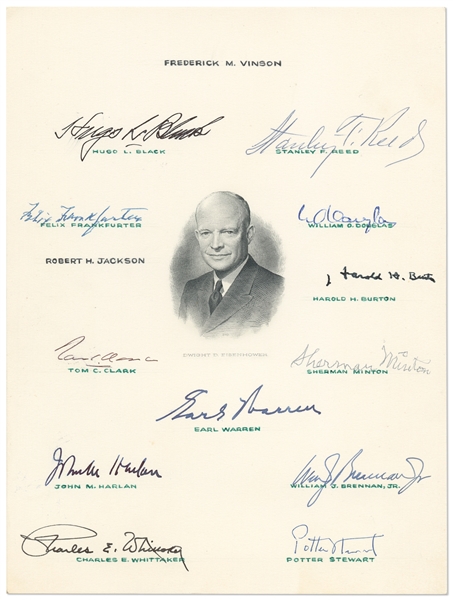 FREDERICK M. VINSON
Hugo L. Black
HUGO L. BLACK
Stanley F. Reed
STANLEY F. REED
Felix Frankfurter
FELIX FRANKFURTER
Wm O Douglas
WILLIAM O. DOUGLAS
ROBERT H. JACKSON
Harold H. Burton
HAROLD H. BURTON
DWIGHT D. EISENHOWER
Tom C. Clark
TOM C. CLARK
Sherman Minton
SHERMAN MINTON
Earl Warren
EARL WARREN
John M. Harlan
JOHN M. HARLAN
Wm J. Brennan Jr
WILLIAM J. BRENNAN, JR.
Charles E. Whittaker
CHARLES E. WHITTAKER
Potter Stewart
POTTER STEWART